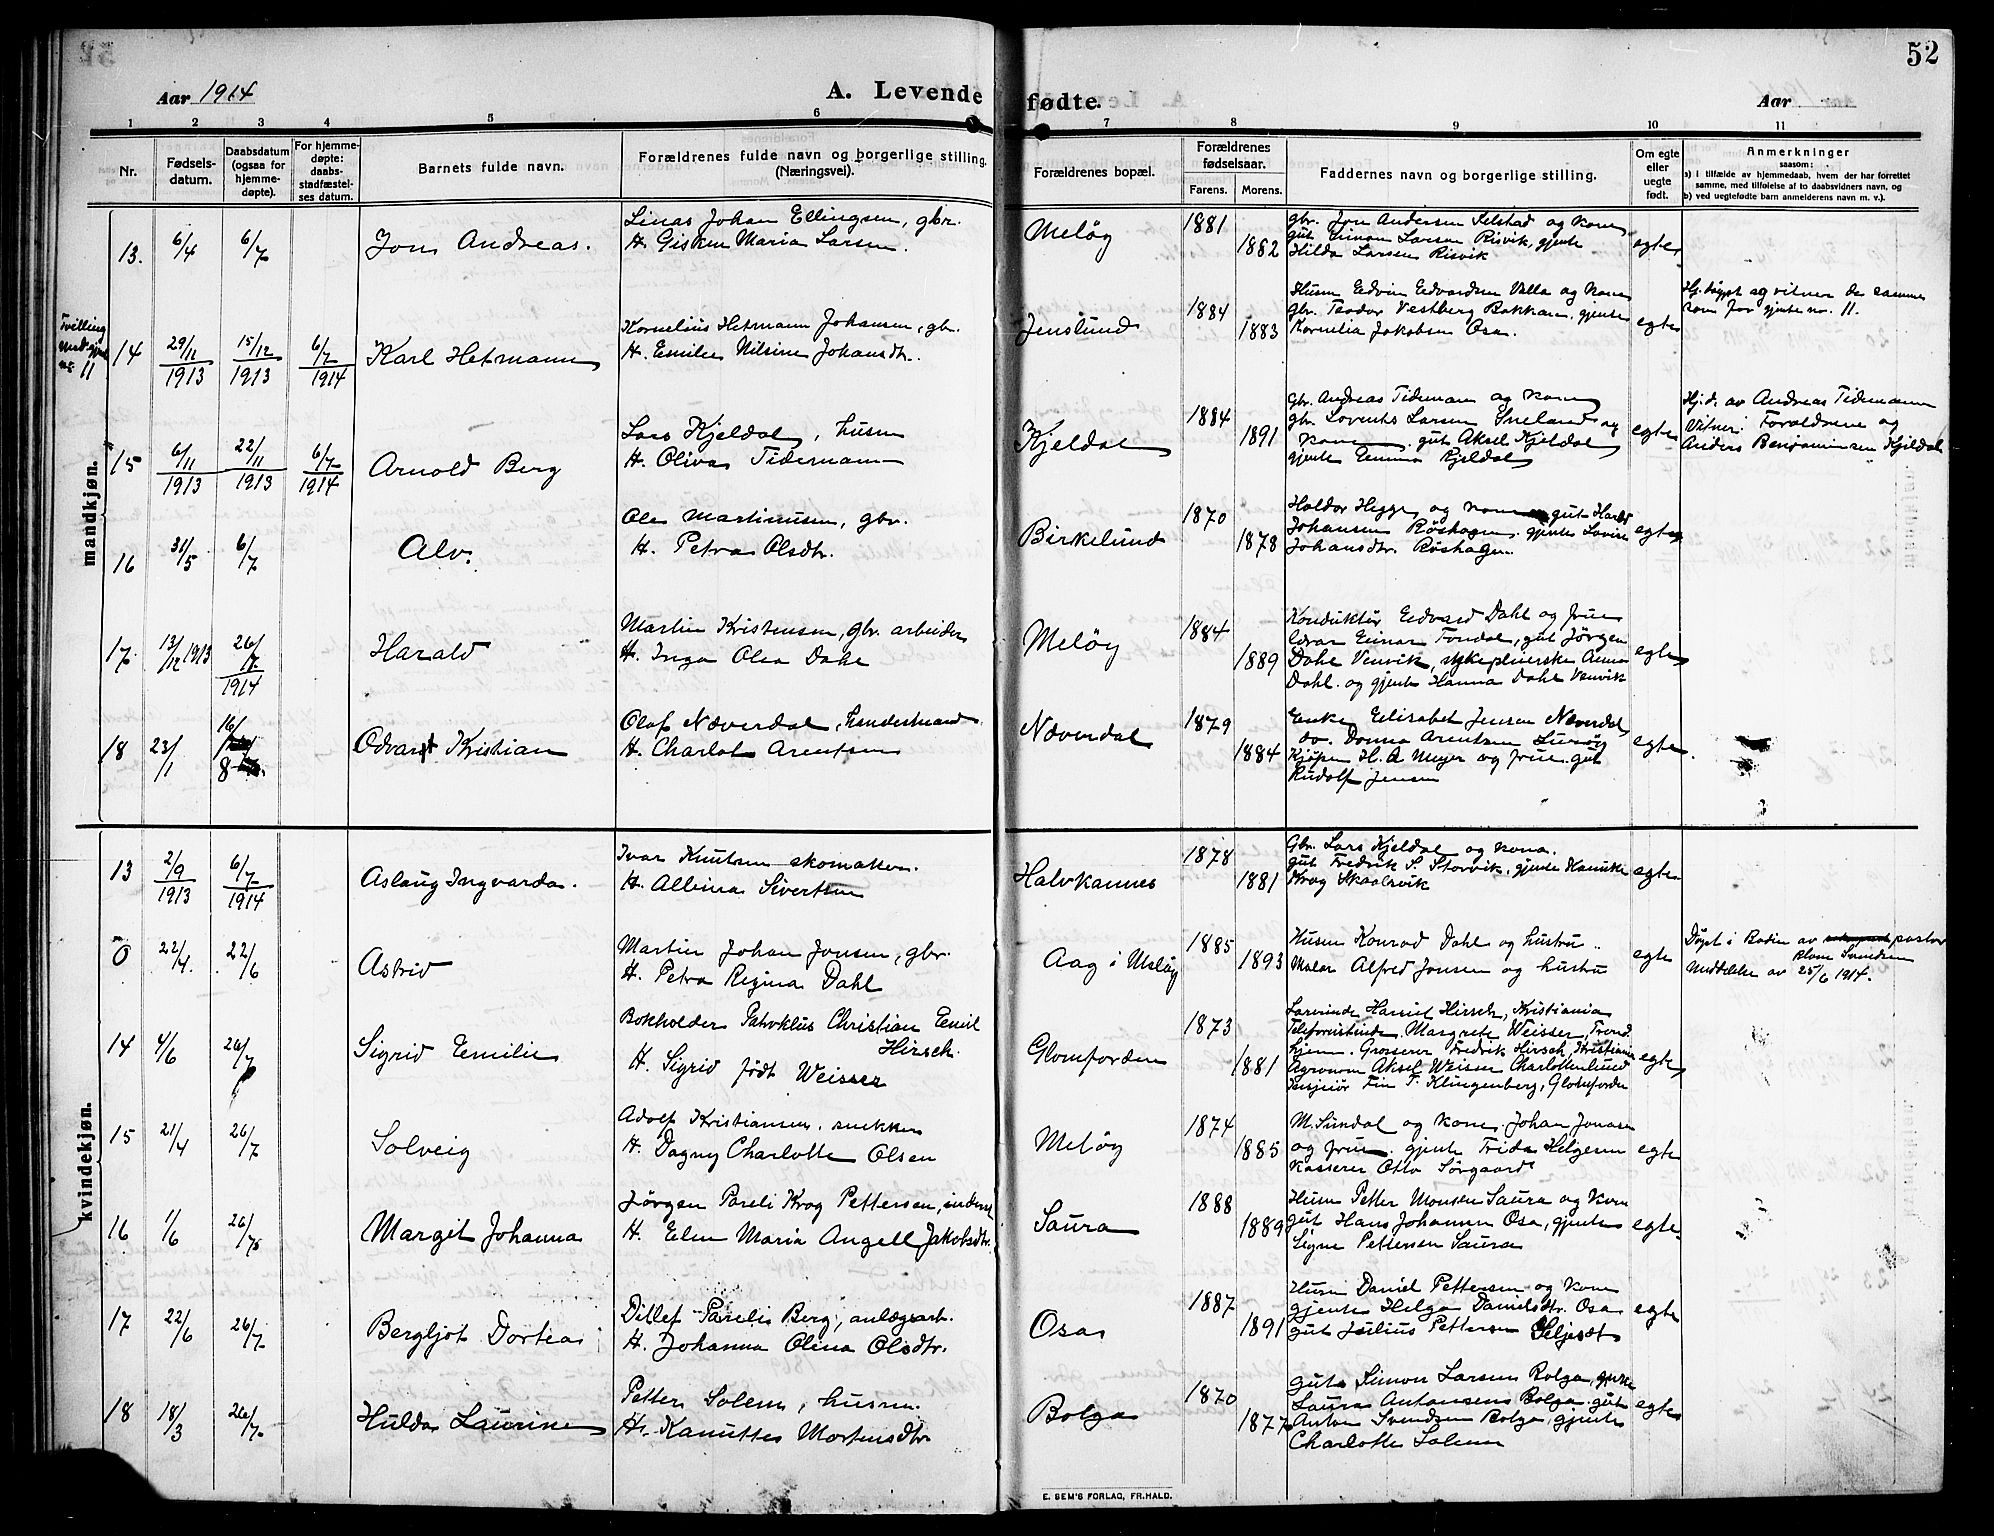 52
Aar 1914
A. Levende fødte.
Aar
1 2 3 4 5 6 7 8 9 10 11
Nr.
Fødsels-
datum.
Daabsdatum
(ogsaa for
hjemme-
døpte).
For hjemme-
døpte:
daabs-
stadfæstel-
ses datum.
Barnets fulde navn.
Forældrenes fulde navn og borgerlige stilling.
(Næringsvei).
Forældrenes bopæl.
Forældrenes
fødselsaar.
Farens. Morens.
Faddernes navn og borgerlige stilling.
Om egte
eller
uegte
født.
Anmerkninger
saasom:
a) i tilfælde av hjemmedaab, hvem der har forrettet
samme, med tilføielse af to daabsvidners navn, og
b) ved uegtefødte barn anmelderens navn m. v.).
mandkjøn.
13. 6/4 6/7 Jon Andreas.
Linas Johan Ellingsen, gbr.
H. Gisken Maria Larsen.
Meløy 1881 1882
gbr. Jon Andersen Selstad og kone
gut Einar Larsen Risvik, gjente
Hilda Larsen Risvik
egte
Tvilling
med gjente
no. 11
14 29/11 1913 15/12 1913 6/7 1914 Karl Hetmann
Kornelius Hetmann Johansen, gbr.
H. Emilie Nilsine Johansdtr.
Jenslund 1884 1883
Husm Edvin Edvardsen Valla og kone
gbr. Teodor Vestberg Bakken, gjente
Kornelia Jakobsen Osa.
egte
Hj.døpt og vitner de samme
som for gjente no. 11.
15 6/11 1913 22/11 1913 6/7 1914 Arnold Berg
Lars Kjeldal, husm
H. Oliva Tidemann
Kjeldal 1884 1891
gbr. Andreas Tidemann og kone
gbr. Lorents Larsen Eneland og
kone, gut Aksel Kjeldal,
gjente Emma Kjeldal
egte
Hj.d. av Andreas Tidemann
Vitner: Forældrene og
Anders Benjaminsen Kjeldal
16 31/5 6/7 Alv.
Ole Martinusen, gbr.
H. Petra Olsdtr.
Birkelund 1870 1878
Haldor Hegge og kone gut Harald
Johansen Røshagen. gjente Lovise
Johansdtr. Røshagen.
egte
17. 13/12 1913 26/7 1914 Harald
Martin Kristensen, gbr. arbeider
H. Inga Olea Dahl
Meløy 1884 1889
Konduktør Edvard Dahl og frue
Einar Fondal, gut Jørgen
Dahl Venvik, sykepleierske Anna
Dahl. og gjente Hanna Dahl Venvik
egte
18 23/1 16/8 Odvart Kristian
Olof Næverdal, handelsmand
H. Charlot Arentsen
Næverdal 1879 1884
Enke Elisabet Jensen Næverdal,
do. Donna Arentsen Lurøy
Kjøpm H. A Meyer og frue. gut
Rudolf Jensen
egte
kvindekjøn.
13 2/9 1913 6/7 1914 Aslaug Ingvarda.
Ivar Knutsen skomaker.
H. Albina Sivertsen
Halvkannes 1878 1881
Gbr. Lars Kjeldal og kona.
gut Fredrik S. Storvik, gjente Kanutte
Krog Skaalsvik
egte
0 22/4. 22/6 Astrid
Martin Johan Jonsen, gbr.
H. Petra Regina Dahl
Aag i Meløy 1885 1893
Husm Konrad Dahl og hustru
Maler Alfred Jonsen og hustru
egte
Døpt i Bodin av pastor
Svendsen
Meddelelse av 25/6 1914.
14 4/6 26/7 Sigrid Emilie
Bokholder Christian Emil
Hirsch.
H. Sigrid født Weisser
Glomfjorden 1873 1881
Lærerinde Hirsch, Kristiania
Telefonistinde Margrete Weisser, Trond-
hjem. Grosserer Fredrik Hirsch, Kristiania
Agronom Aksel Weisser Charlottenlund
Insjeiør Fin T. Klingenberg, Glomfjorden
egte
15 21/4 26/7 Solveig
Adolf Kristiansen, snekker
H. Dagny Charlotte Olsen
Meløy 1874 1885
M. Sundal og kone. Johan Jonasen
og frue. gjente Frida Helgesen
kasserer Otto Sørgaard
egte
16 1/6 26/7 Margit Johanna
Jørgen Pareli Krog Pettersen, inderst
H. Elen Maria Angell Jakobsdtr.
Saura 1888 1889
Husm Petter Monsen Saura og kone
gut Hans Johansen Osa, gjente
Signe Pettersen Saura
egte
17 22/6 26/7 Bergljot Dortea
Ditlef Parelis Berg, anlægsarb.
H. Johanna Olina Olsdtr.
Osa 1887 1891
Husm Daniel Pettersen og kone
gjente Helga Danielsdtr. Osa
gut Julius Pettersen Seljeset
egte
18 18/3 26/7 Hulda Laurine
Petter Solem, husm.
H. Kanutte Mortensdtr.
Bolga 1870 1877
gut Simon Larsen Bolga, gjente
Laura Antonsen Bolga, gut
Anton Svendsen Bolga, gjente
Charlotte Solem
egte
E. SEM'S FORLAG, FR.HALD.